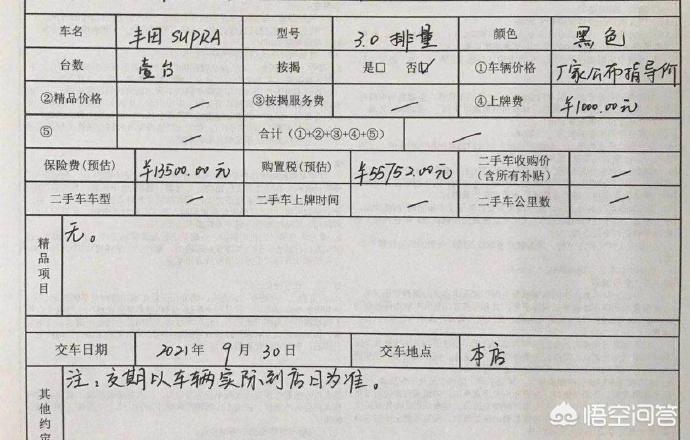 车名 丰田 SUPRA 型号 3.0 排量 颜色 黑色
台数 壹台 按揭 是□ 否☑ ①车辆价格 厂家公布指导价
②精品价格 — ③按揭服务费 — ④上牌费 ¥1000.00元
⑤ — 合计(①+②+③+④+⑤) —
保险费(预估) ¥13500.00元 购置税(预估) ¥55752.00元 二手车收购价(含所有补贴) —
二手车车型 — 二手车上牌时间 — 二手车公里数 —
精品项目 无。
交车日期 2021年 9月30日 交车地点 本店
其他约定 注:交期以车辆实际到店日为准。
悟空问答